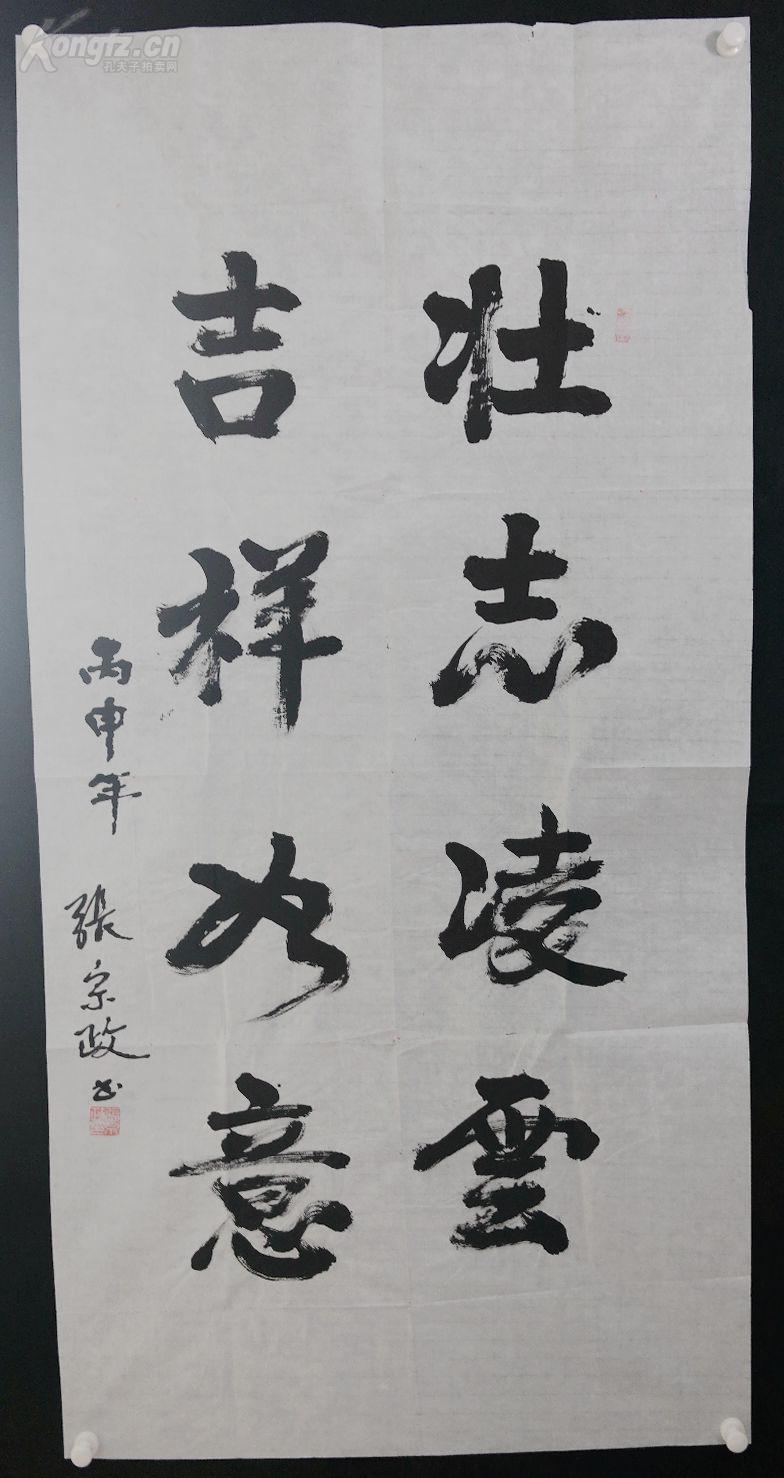 壮志凌雲
吉祥如意
丙申年 張宗政书
Kongfz.cn
孔夫子拍卖网